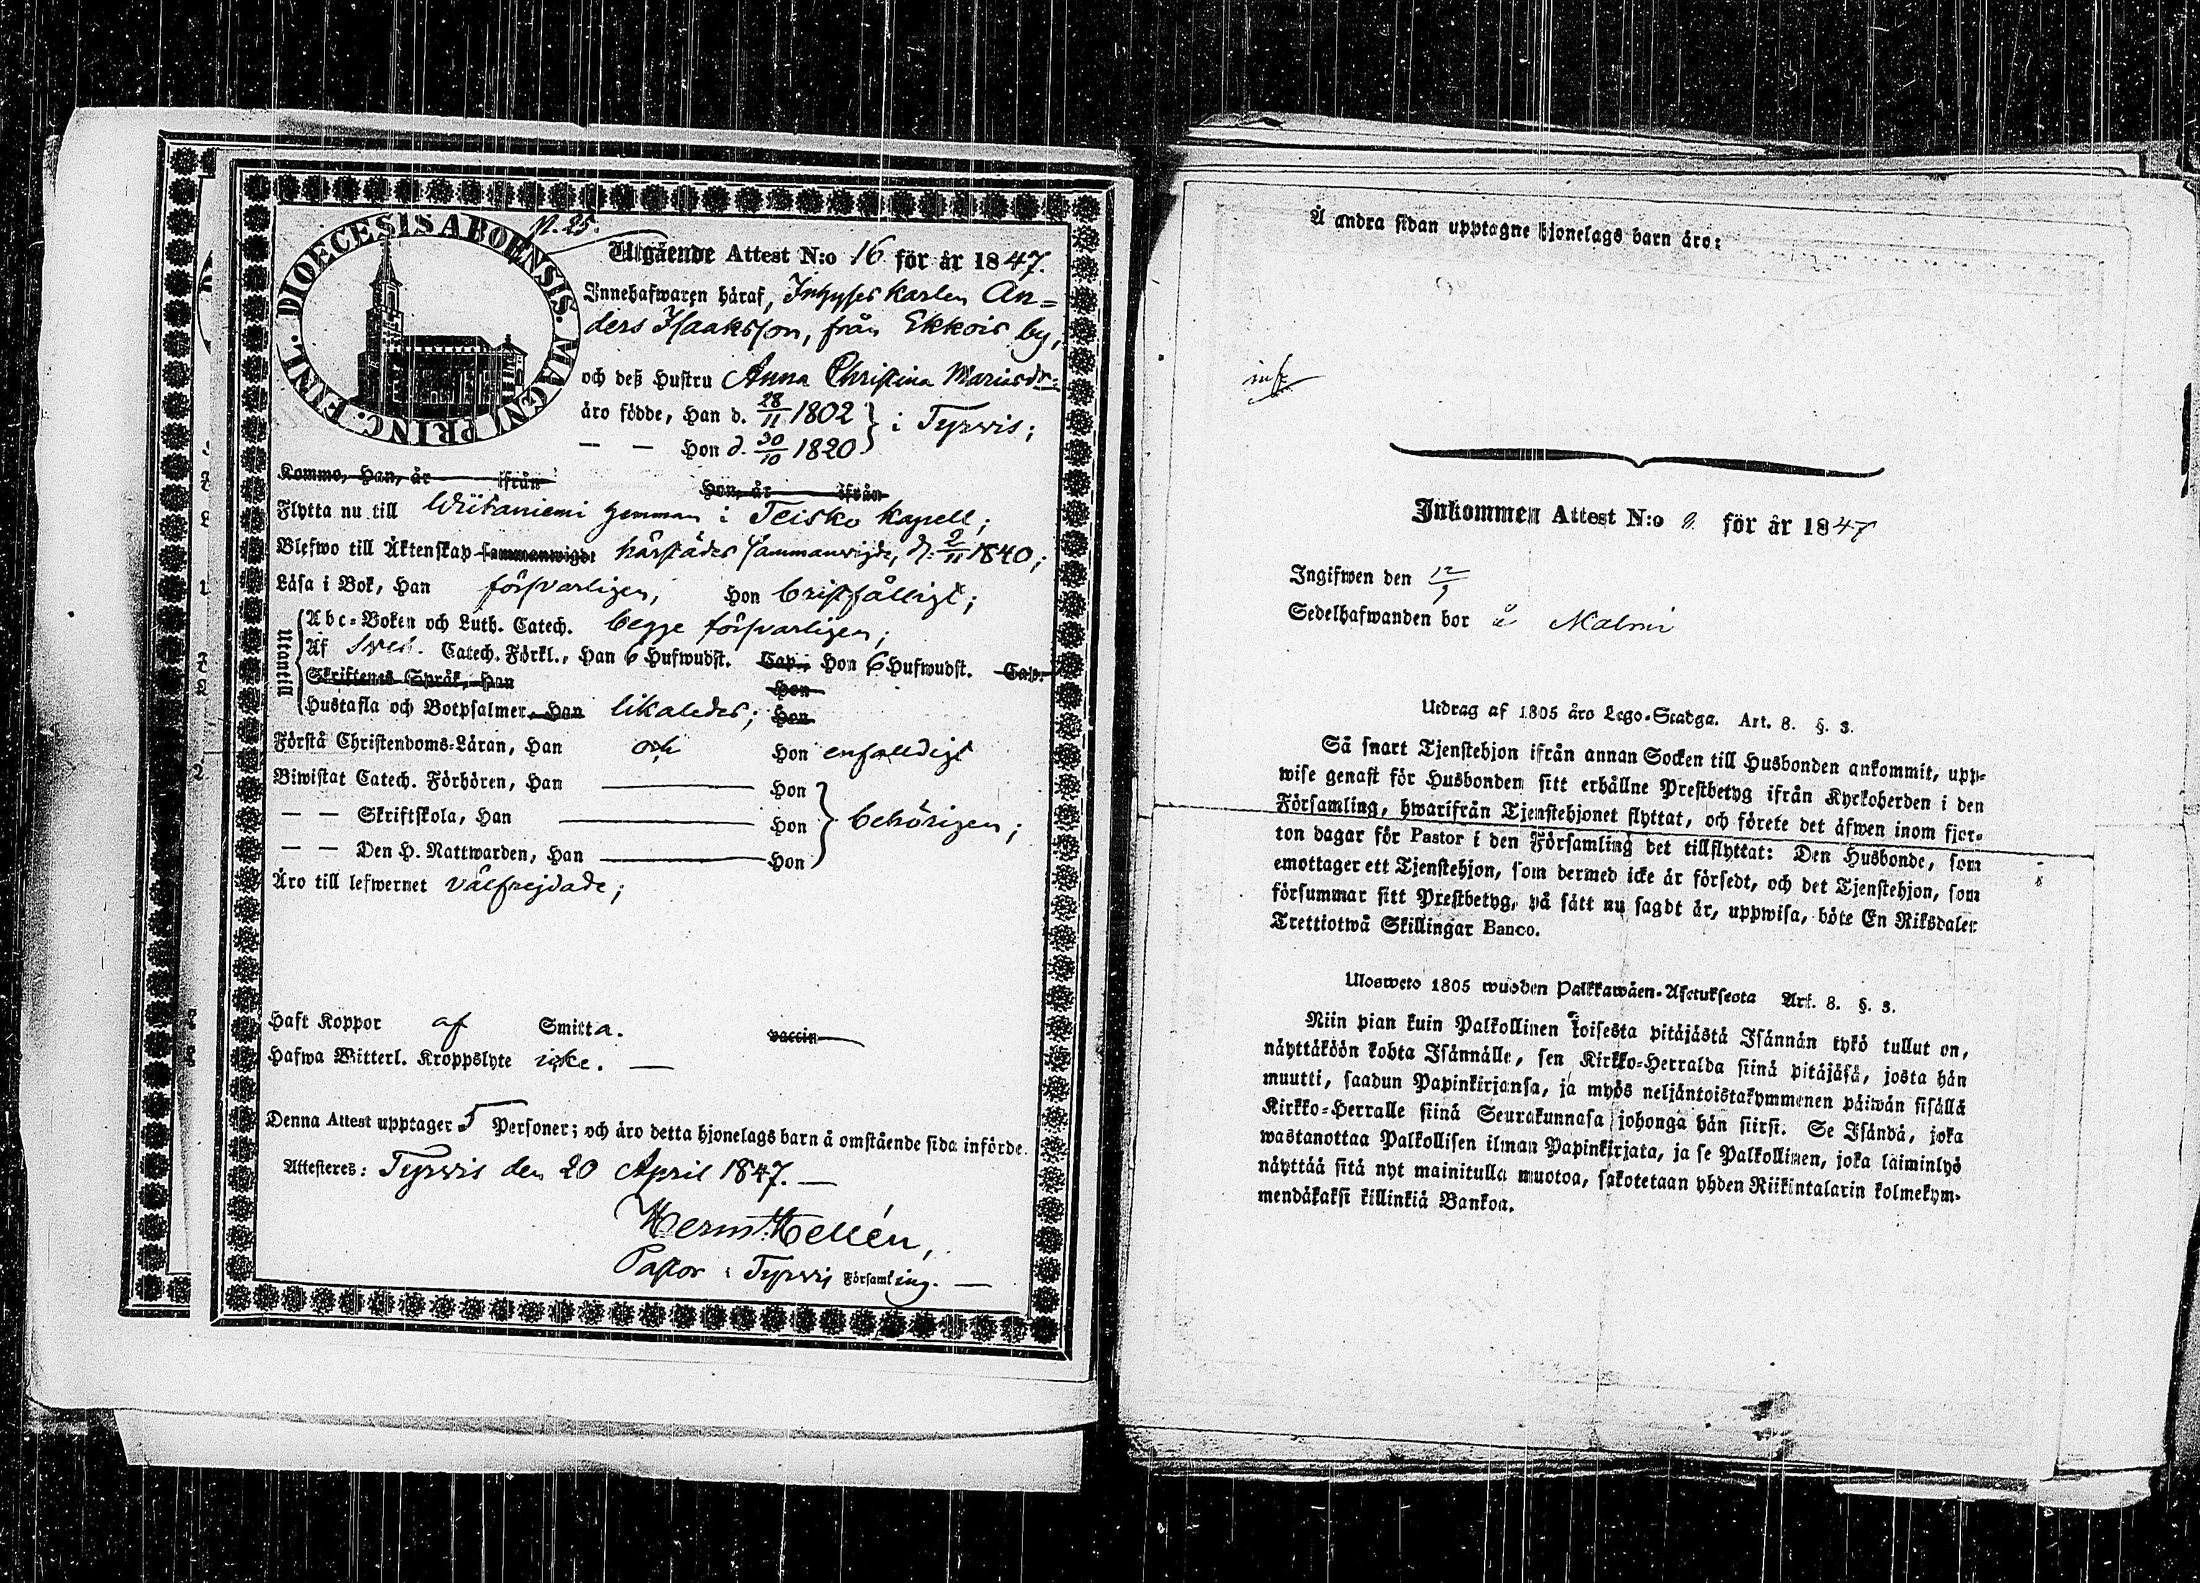 DIOECESIS ABOENSIS. MAGNI PRINC. FINL.
N. 25.
Utgående Attest N:o 16 för år 1847.
Innehafwaren häraf, Inhyses karlen An=
ders Isaaksson, från Ekkois by,
och deß Hustru Anna Christina Mariasdr:
äro födde, Han d. 28/11 1802 } i Tyrvis;
— — Hon d. 30/10 1820
Komme, Han, år ifrån Hon, år ifrån
Flytta nu till Wiitaniemi hemman i Teisko Kapell;
Blefwo till Äktenskap sammanwigde härstädes sammanvigde, d: 2/11 1840;
Läsa i Bok, Han försvarligen, Hon bristfälligt;
Utantill
Abc-Boken och Luth. Catech. begge försvarligen;
Af Sved. Catech. Förkl., Han 6 Hufwudst. Cap. Hon 6 Hufwudst. Cap.
Skriftenes Språk, Han Hon
Hustafla och Botpsalmer, Han likaledes; Hon
Förstå Christendoms-Läran, Han och Hon enfaldigt
Biwistat Catech. Förhören, Han Hon
— — Skriftskola, Han Hon } behörigen;
— — Den H. Nattwarden, Han Hon
Äro till lefwernet välfrejdade;
Haft Koppor af Smitta. vaccin
Hafwa Witterl. Kroppslyte icke. —
Denna Attest upptager 5 Personer; och äro detta hjonelags barn å omstående sida införde.
Attesteres: Tyrvis den 20 April 1847. —
Herm. Hellén,
Pastor i Tyrvis Församling. —
Å andra sidan upptagne hjonelags barn äro:
Inkommen Attest N:o 9. för år 1847
Ingifwen den 12/9
Sedelhafwanden bor å Malmi
Utdrag af 1805 års Lego-Stadga. Art. 8. §. 3.
Så snart Tjenstehjon ifrån annan Socken till Husbonden ankommit, upp-
wise genast för Husbonden sitt erhållne Prestbetyg ifrån Kyrkoherden i den
Församling, hwarifrån Tjenstehjonet flyttat, och förete det äfwen inom fjor-
ton dagar för Pastor i den Församling det tillflyttat: Den Husbonde, som
emottager ett Tjenstehjon, som dermed icke är försedt, och det Tjenstehjon, som
försummar sitt Prestbetyg, på sätt nu sagdt är, uppwisa, böte En Riksdaler
Trettiotwå Skillingar Banco.
Ulosweto 1805 wuoden Palkkawäen-Asetuksesta Art. 8. §. 3.
Niin pian kuin Palkollinen toisesta pitäjästä Isännän tykö tullut on,
näyttäköön kohta Isännälle, sen Kirkko-Herralda siinä pitäjäsä, josta hän
muutti, saadun Papinkirjansa, ja myös neljäntoistakymmenen päiwän sisällä
Kirkko-Herralle siinä Seurakunnasa johonga hän siirsi. Se Isändä, joka
wastanottaa Palkollisen ilman Papinkirjata, ja se Palkollinen, joka laiminlyö
näyttää sitä nyt mainitulla muotoa, sakotetaan yhden Riikintalarin kolmekym-
mendäkaksi killinkiä Bankoa.